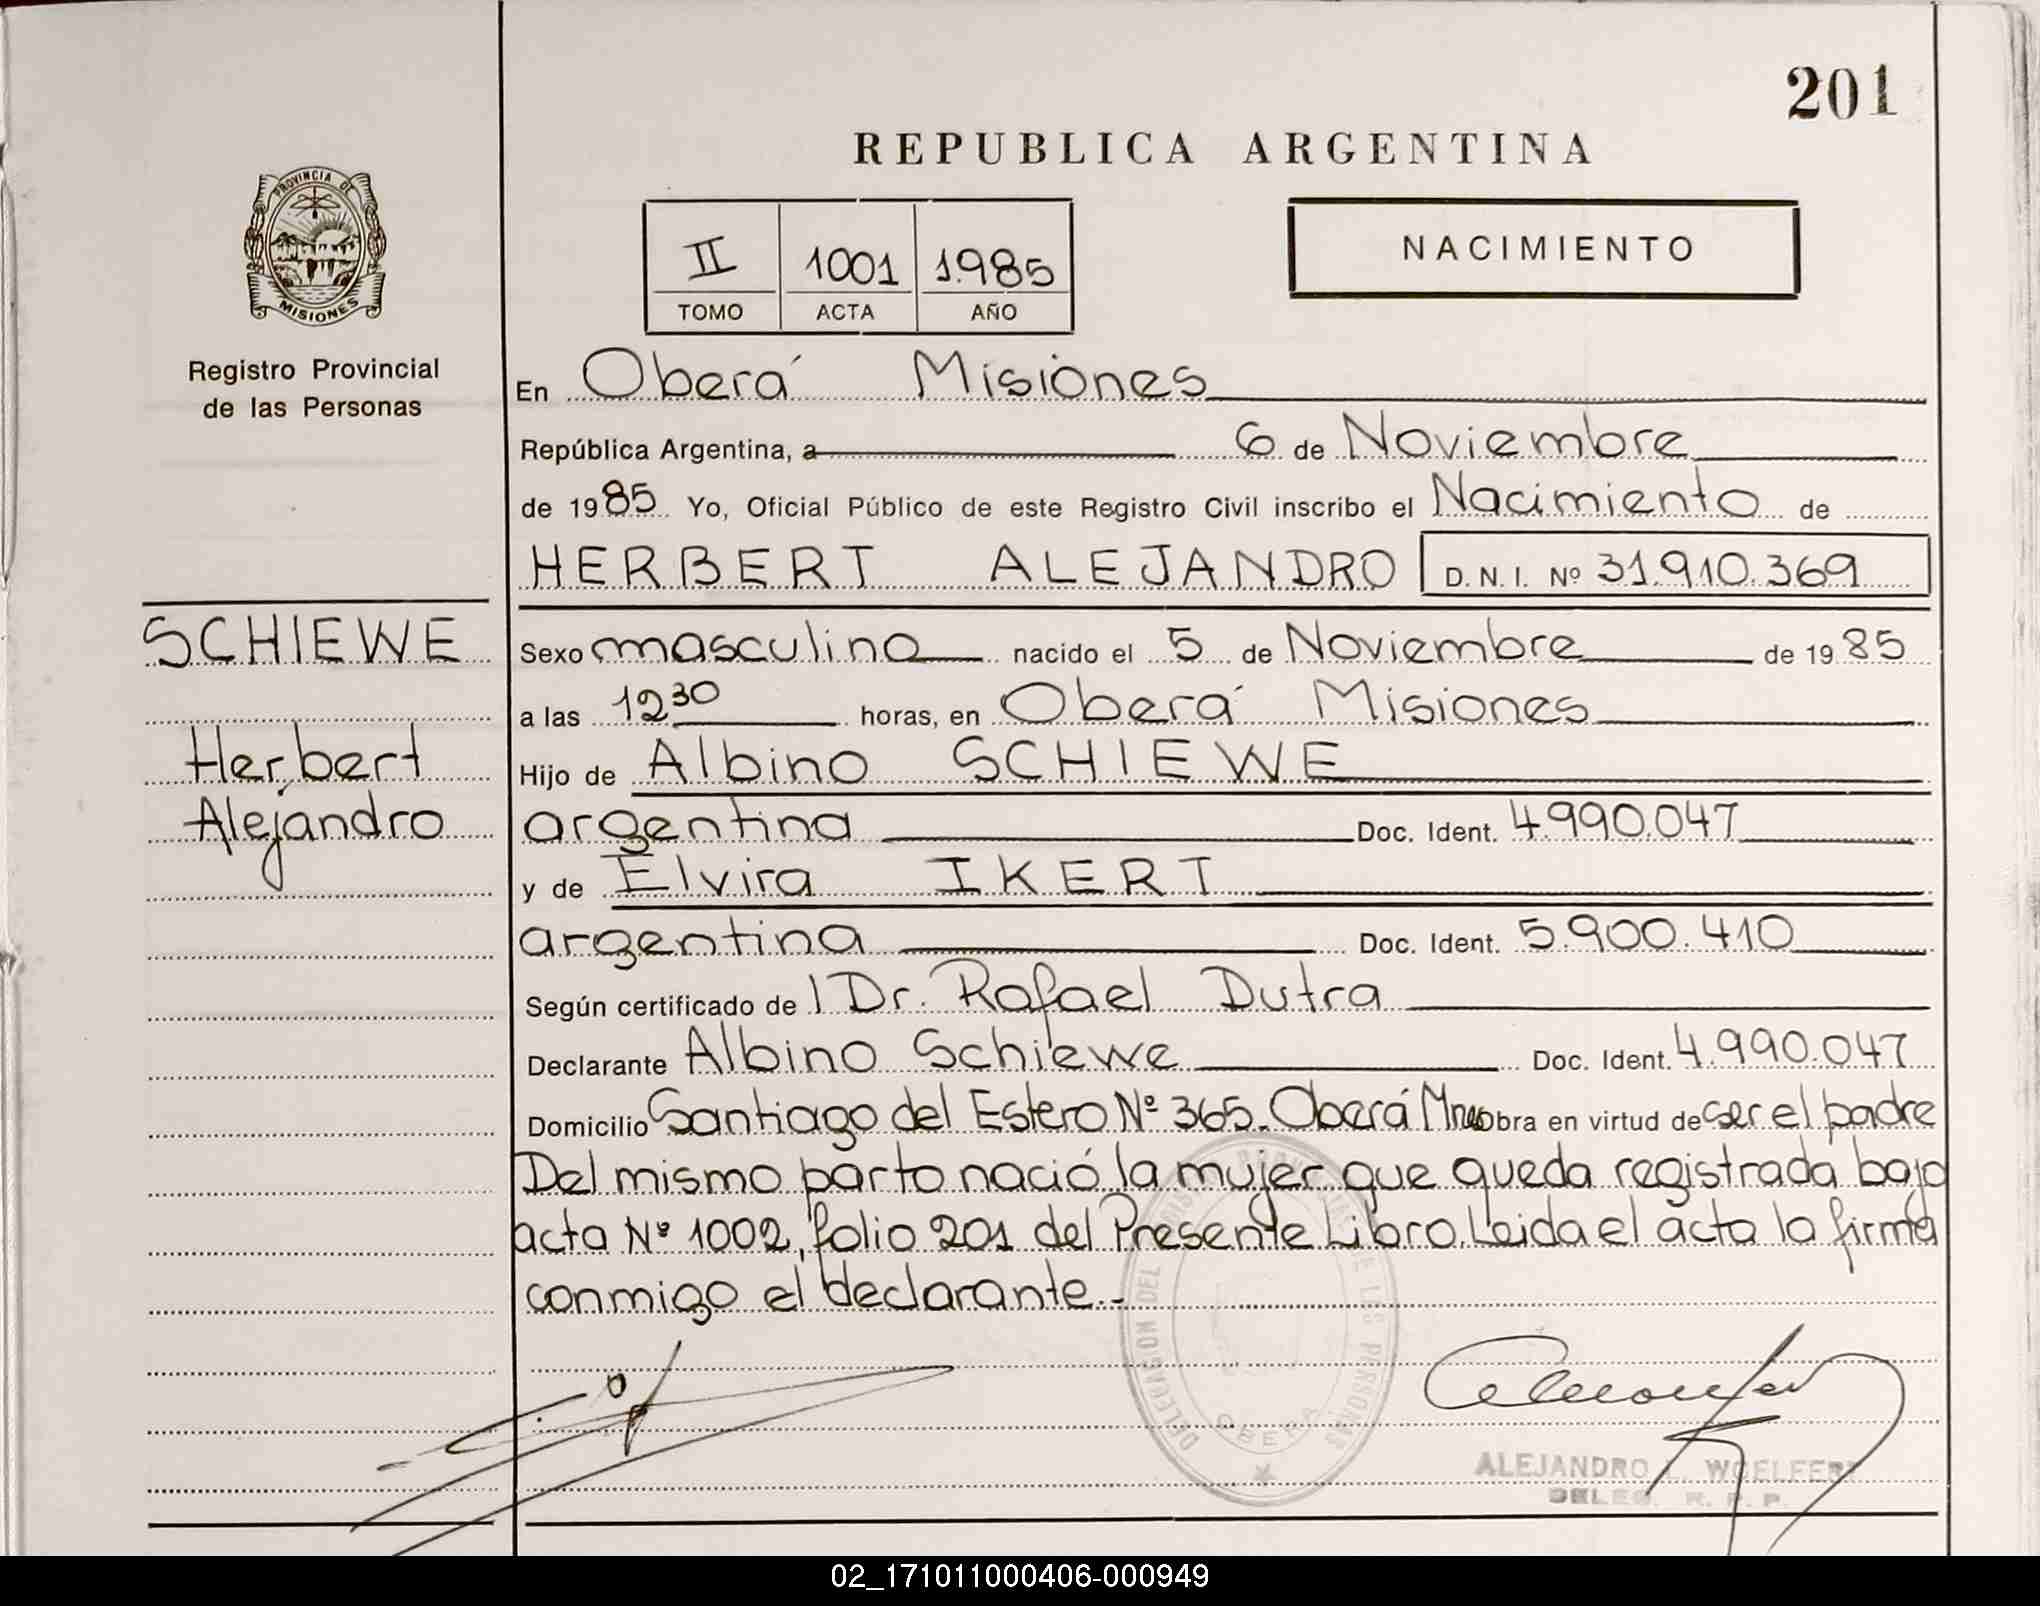 201
REPUBLICA ARGENTINA
PROVINCIA DE
MISIONES
Registro Provincial
de las Personas
II 1001 1985
TOMO ACTA AÑO
NACIMIENTO
En Oberá Misiones
República Argentina, a 6 de Noviembre
de 1985 Yo, Oficial Público de este Registro Civil inscribo el Nacimiento de
HERBERT ALEJANDRO D.N.I. Nº 31.910.369
SCHIEWE
Herbert
Alejandro
Sexo masculino nacido el 5 de Noviembre de 1985
a las 12 30 horas, en Oberá Misiones
Hijo de Albino SCHIEWE
argentina Doc. Ident. 4.990.047
y de Elvira IKERT
argentina Doc. Ident. 5.900.410
Según certificado de l Dr. Rafael Dutra
Declarante Albino Schiewe Doc. Ident. 4.990.047
Domicilio Santiago del Estero Nº 365. Oberá Mnes obra en virtud de ser el padre
Del mismo parto nació la mujer que queda registrada bajo
acta Nº 1002, folio 201 del Presente Libro. Leida el acta la firma
conmigo el declarante.-
DELEGACION DEL REGISTRO PROVINCIAL DE LAS PERSONAS
OBERA
ALEJANDRO L. WOELFERT
DELEG. R. P. P.
02_171011000406-000949